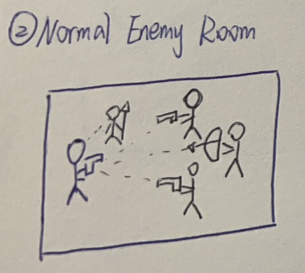 ② Normal Enemy Room